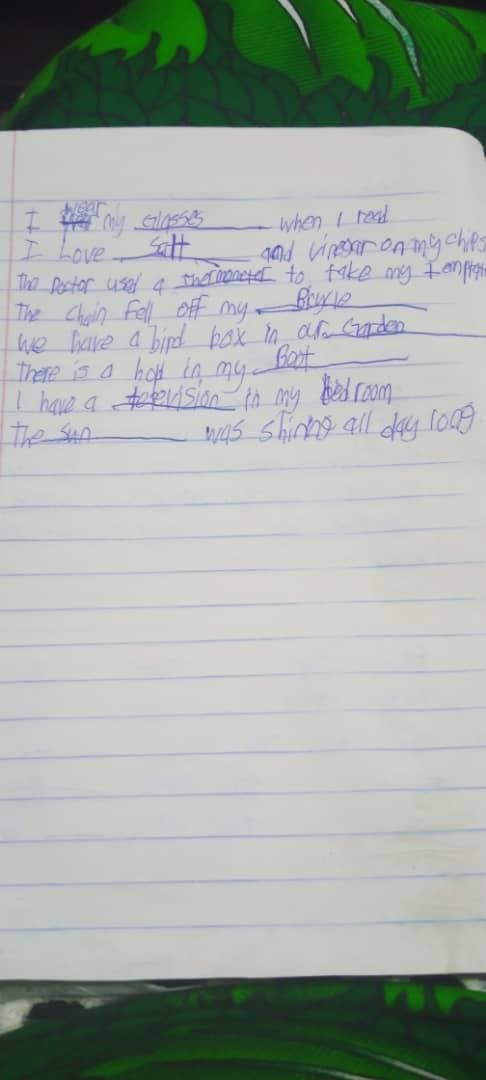 I wear my Glasses when I read
I Love Salt and Vinegar on my chips
The Doctor used a thermometer to take my
The Chain Fell off my Bicycle
We have a bird box in our Garden
There is a in my Boot
I have a television in my bedroom
The Sun was shining all day long